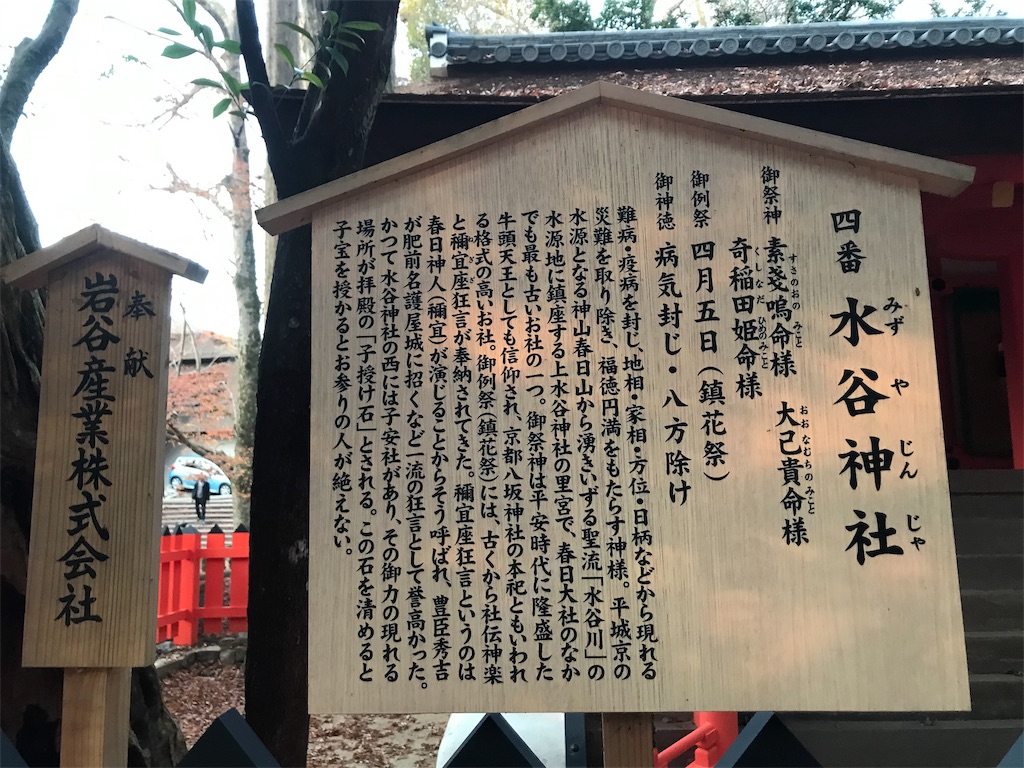 四番 水谷神社
みずやじんじゃ
御祭神 素戔嗚命様 大己貴命様
すさのおのみこと おおなむちのみこと
奇稲田姫命様
くしなだひめのみこと
御例祭 四月五日（鎮花祭）
御神徳 病気封じ・八方除け
難病・疫病を封じ、地相・家相・方位・日柄などから現れる
災難を取り除き、福徳円満をもたらす神様。平城京の
水源となる神山春日山から湧きいずる聖流「水谷川」の
水源地に鎮座する上水谷神社の里宮で、春日大社のなか
でも最も古いお社の一つ。御祭神は平安時代に隆盛した
牛頭天王としても信仰され、京都八坂神社の本祀ともいわれ
る格式の高いお社。御例祭（鎮花祭）には、古くから社伝神楽
と禰宜座狂言が奉納されてきた。禰宜座狂言というのは
ねぎざ
春日神人（禰宜）が演じることからそう呼ばれ、豊臣秀吉
が肥前名護屋城に招くなど一流の狂言として誉高かった。
かつて水谷神社の西には子安社があり、その御力の現れる
場所が拝殿の「子授け石」とされる。この石を清めると
子宝を授かるとお参りの人が絶えない。
奉献
岩谷産業株式会社